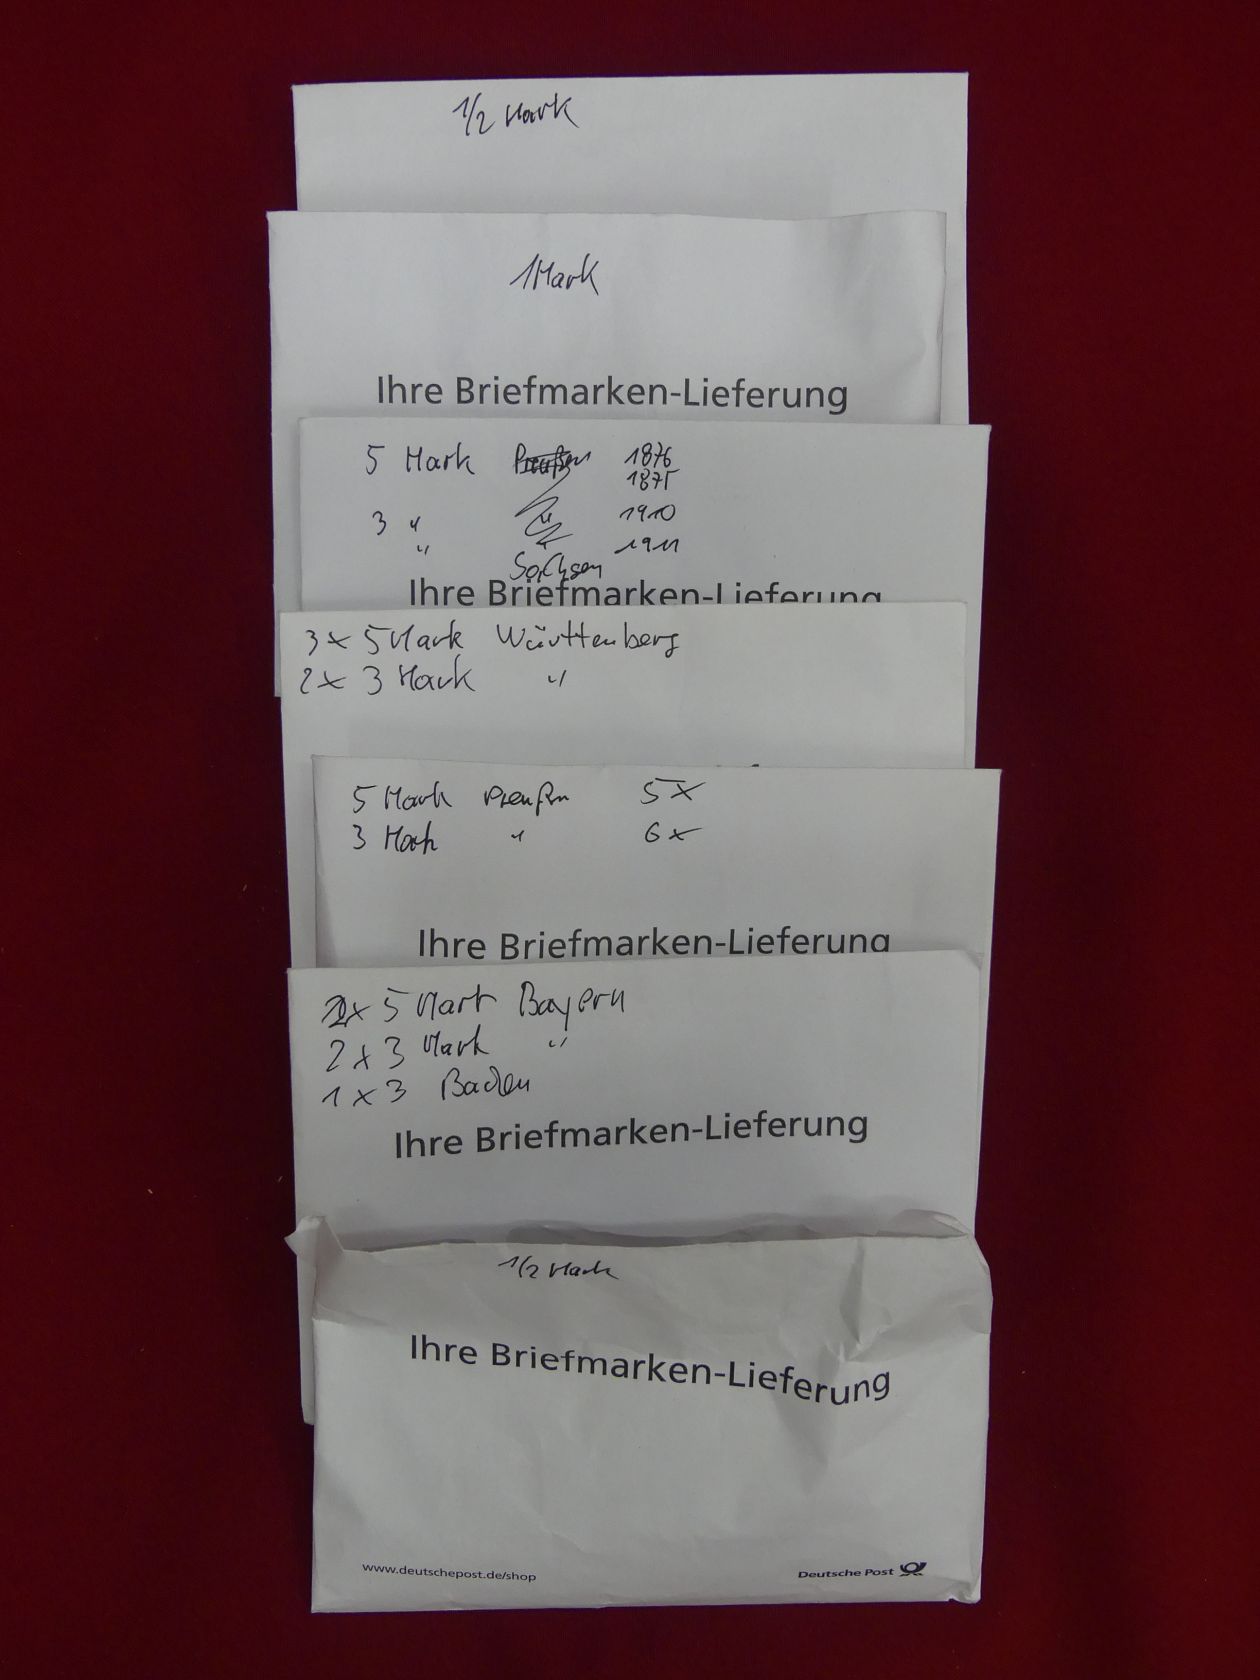 1/2 Mark
1 Mark
Ihre Briefmarken-Lieferung
5 Mark Preußen 1876
1875
3 " " 1910
" 1911
Sachsen
Ihre Briefmarken-Lieferung
3x 5 Mark Württenberg
2x 3 Mark "
5 Mark Preußen 5x
3 Mark " 6x
Ihre Briefmarken-Lieferung
5 Mark Bayern
2 x 3 Mark "
1 x 3 Baden
Ihre Briefmarken-Lieferung
1/2 Mark
Ihre Briefmarken-Lieferung
www.deutschepost.de/shop
Deutsche Post